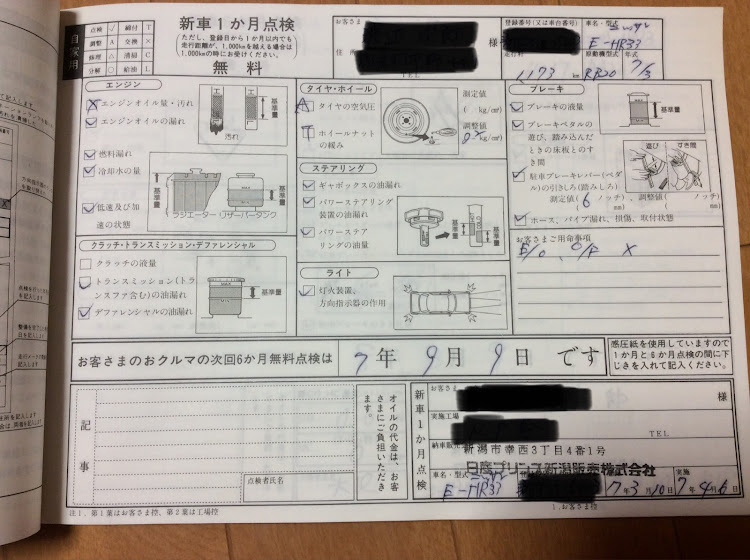 自家用
点検 ✓ 締付 T
調整 A 交換 ×
修理 △ 清掃 C
分解 ○ 給油 L
新車1か月点検
(ただし、登録日から1か月以内でも
走行距離が、1,000kmを越える場合は
1,000kmの時にお受けください。)
無料
お客さま
様
住所
TEL
登録番号(又は車台番号)
車名・型式
E-HR33
走行
1173 km
原動機型式 年式
RB20 7/3
エンジン
エンジンオイル量・汚れ
エンジンオイルの漏れ
燃料漏れ
冷却水の量
低速及び加
速の状態
基準量
汚れ
基準量
基準量
ラジエーター リザーバータンク
クラッチ・トランスミッション・デファレンシャル
クラッチの液量
トランスミッション(トラ
ンスファ含む)の油漏れ
デファレンシャルの油漏れ
基準量
タイヤ・ホイール
A タイヤの空気圧
T ホイールナット
の緩み
測定値
( kg/cm²)
調整値
kg/cm²)
ステアリング
ギャボックスの油漏れ
パワーステアリング
装置の油漏れ
パワーステア
リングの油量
基準量
ライト
灯火装置、
方向指示器の作用
ブレーキ
ブレーキの液量
ブレーキペダルの
遊び、踏み込んだ
ときの床板とのす
き間
駐車ブレーキレバー(ペダ
ル)の引きしろ(踏みしろ)
測定値(6 ノッチ/mm)、調整値( ノッチ/mm)
ホース、パイプ漏れ、損傷、取付状態
基準量
遊び すき間
お客さまご用命事項
E/O、O/F X
お客さまのおクルマの次回6か月無料点検は 7年 9月 9日 です
感圧紙を使用していますので
1か月と6か月点検の間に下
じきを入れて記入ください。
記事
点検者氏名
オイルの代金は、お客
さまにご負担いただき
ます。
新車1か月点検
お客さま
様
実施工場
TEL
納車販売
新潟市幸西3丁目4番1号
日産プリンス新潟販売株式会社
車名・型式
E-HR33
7年3月10日
実施
7年4月6日
注1. 第1葉はお客さま控、第2葉は工場控
1. お客さま控